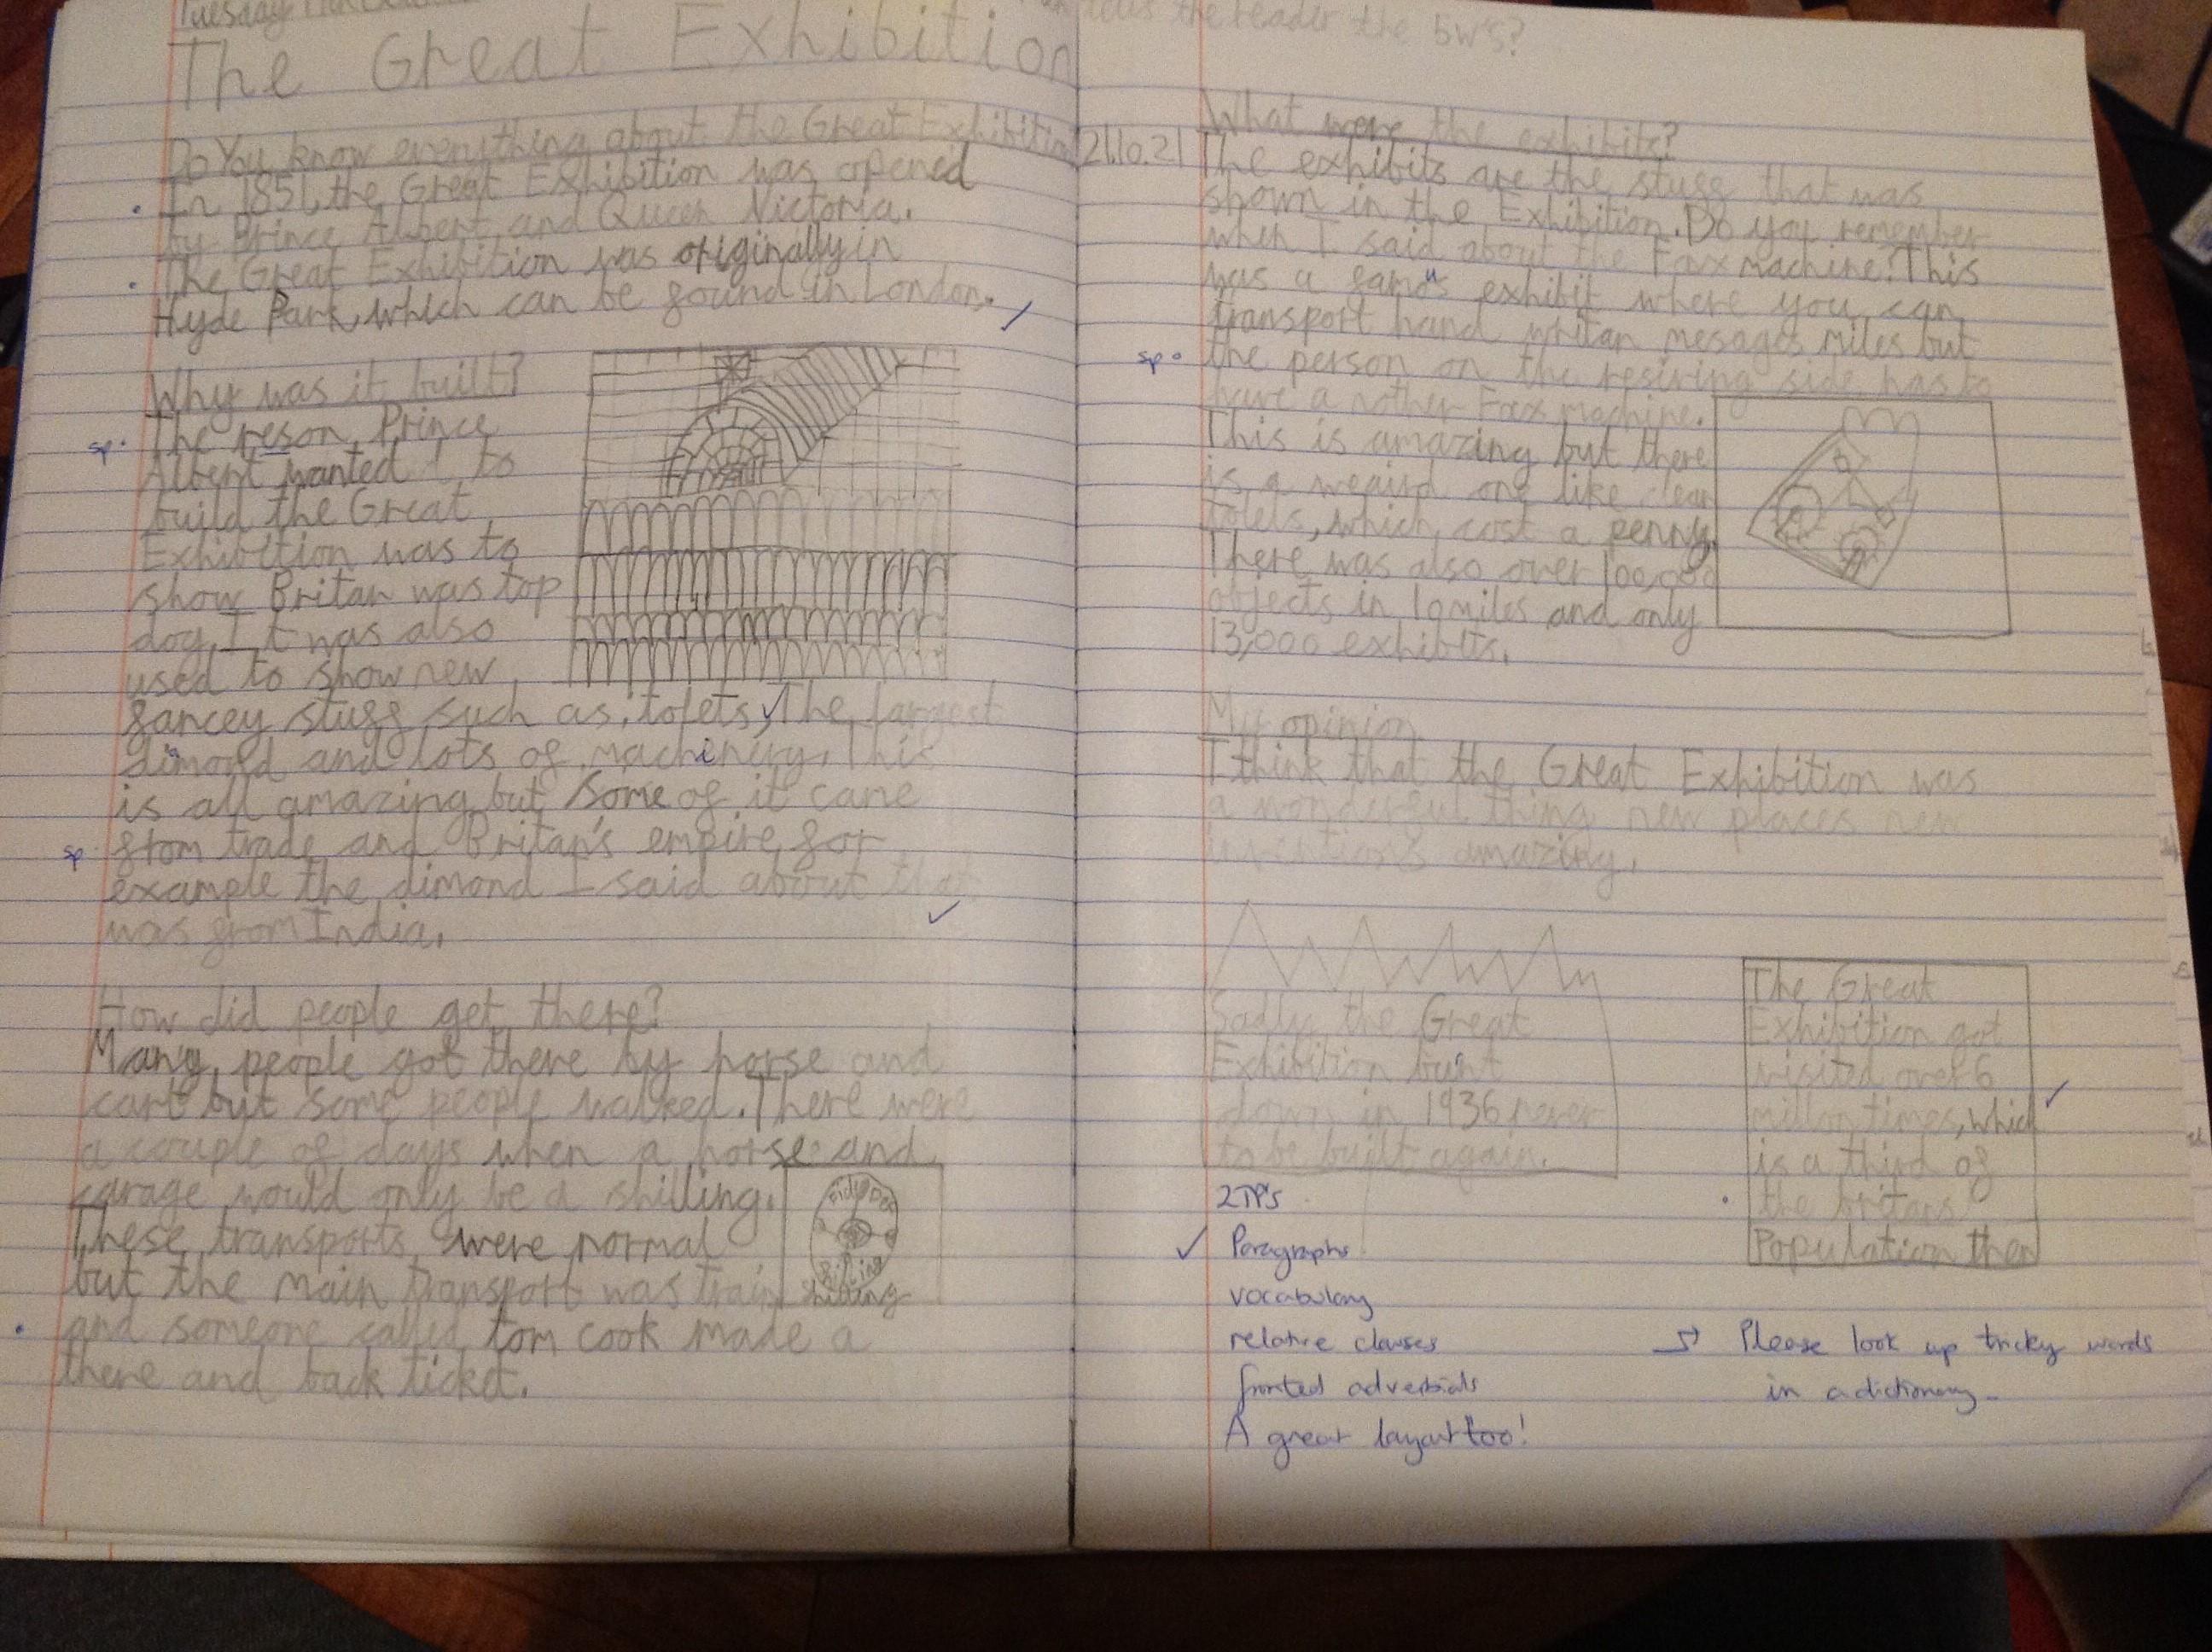 Tuesday
the reader the 5W's?
The Great Exhibition
Do You know everything about the Great Exhibition
In 1851, the Great Exhibition was opened
by Prince Albert and Queen Victoria.
The Great Exhibition was originally in
Hyde Park, which can be found in London.
Why was it built?
sp
The reson Prince
Albert wanted to
build the Great
Exhibition was to
show Britan was top
dog. It was also
used to show new
fancey stuff such as, tolets, The largest
dimond and lots of machinery. This
is all amazing but some of it came
sp
from trade and Britan's empire for
example the dimond I said about that
was from India.
How did people get there?
Many people got there by horse and
cart but some people walked. There were
a couple of days when a horse and
carage would only be a shilling.
These transports were normal
but the main transport was train
shilling
and someone called tom cook made a
there and back ticket.
21.10.21
What were the exhibits?
The exhibits are the stuff that was
shown in the Exhibition. Do you remember
when I said about the Fax machine? This
was a famous exhibit where you can
transport hand writan mesages miles but
sp
the person on the resiving side has to
have a nother Fax machine.
This is amazing but there
is a weaird one like clean
tolets, which cost a penny.
There was also over 100,000
objects in 10 miles and only
13,000 exhibits.
My opinion
I think that the Great Exhibition was
a wonderful thing new places new
inventions amazing.
Sadly the Great
Exhibition burnt
down in 1936 never
to be built again.
The Great
Exhibition got
visited over 6
millon times, which
is a third of
the britans
Population then
2TP's
Paragraphs
vocabulary
relative clauses
fronted adverbials
A great layout too!
→ Please look up tricky words
in a dictionary.